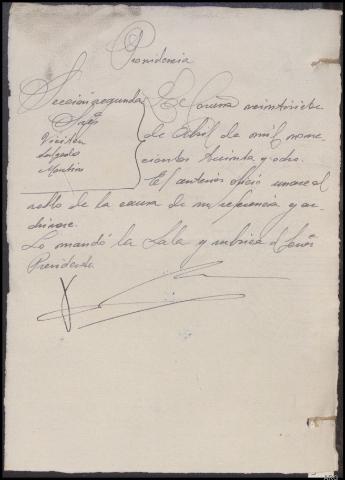 Providencia
Sección segunda
Sres
Salgado
La Coruña veintisiete
de Abril de mil nove-
cientos treinta y ocho.
El anterior oficio unase al
rollo de la causa de su referencia y ar-
chivese.
Lo mandó la Sala y rubrica el Señor
Presidente